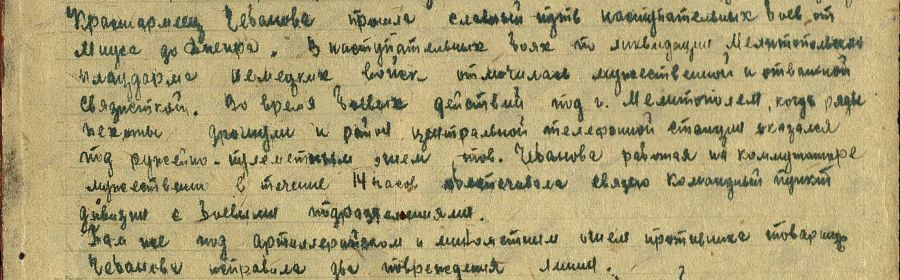 Красноармеец Чебанова прошла славный путь наступательных боев от
Миуса до Днепра. В наступательных боях по ликвидации Мелитопольского
плацдарма немецких войск отмечалась мужественной и отважной
связисткой. Во время боевых действий под г. Мелитополем, когда ряды
пехоты дрогнули и район центральной телефонной станции оказался
под ружейно-пулеметным огнем тов. Чебанова работая на коммутаторе
мужественно в течение 14 часов обеспечивала связью командный пункт
дивизии с боевыми подразделениями.
Там же под артиллерийском и минометным огнем противника товарищ
Чебанова исправила два повреждения линии.